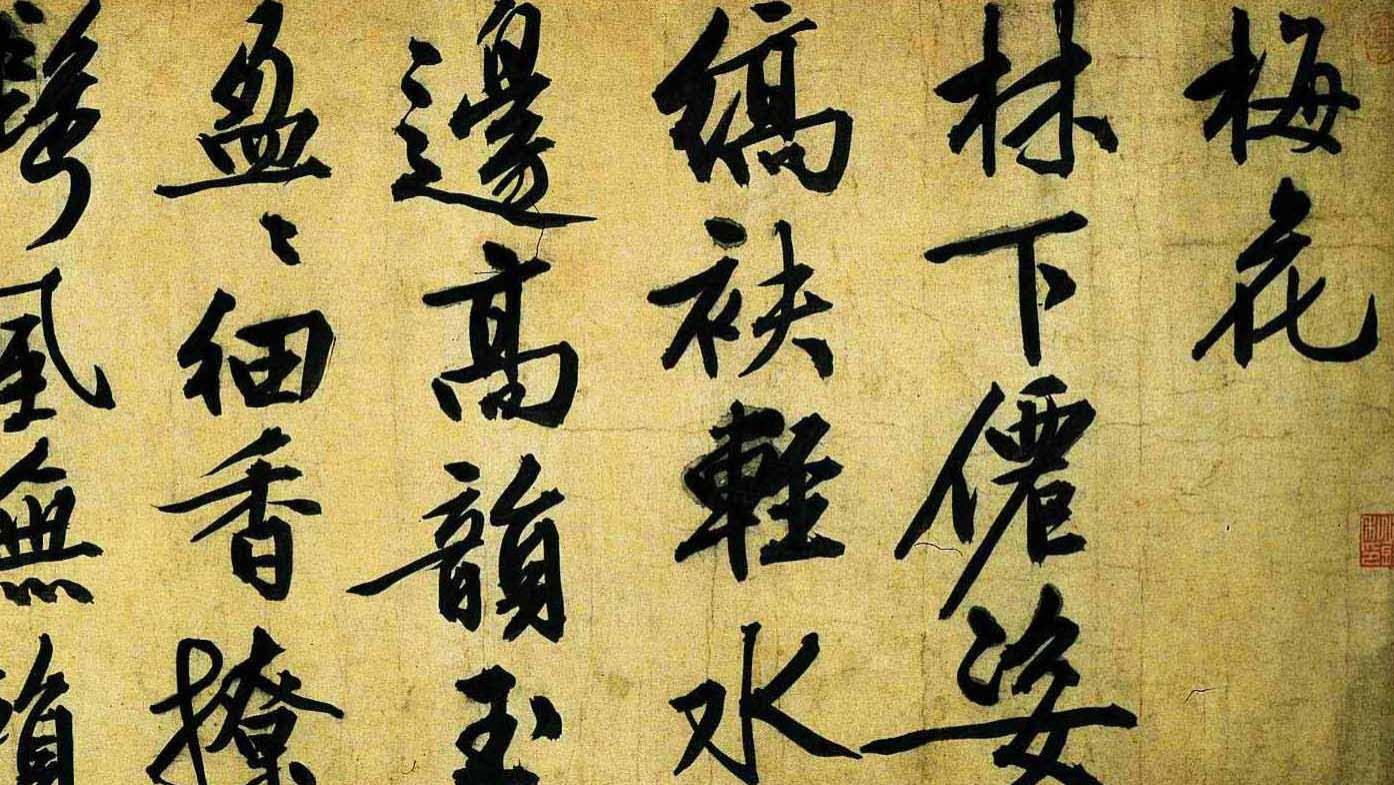 梅花
林下僊姿
縞袂輕水
邊高韻玉
盈〻細香撩
風無頼